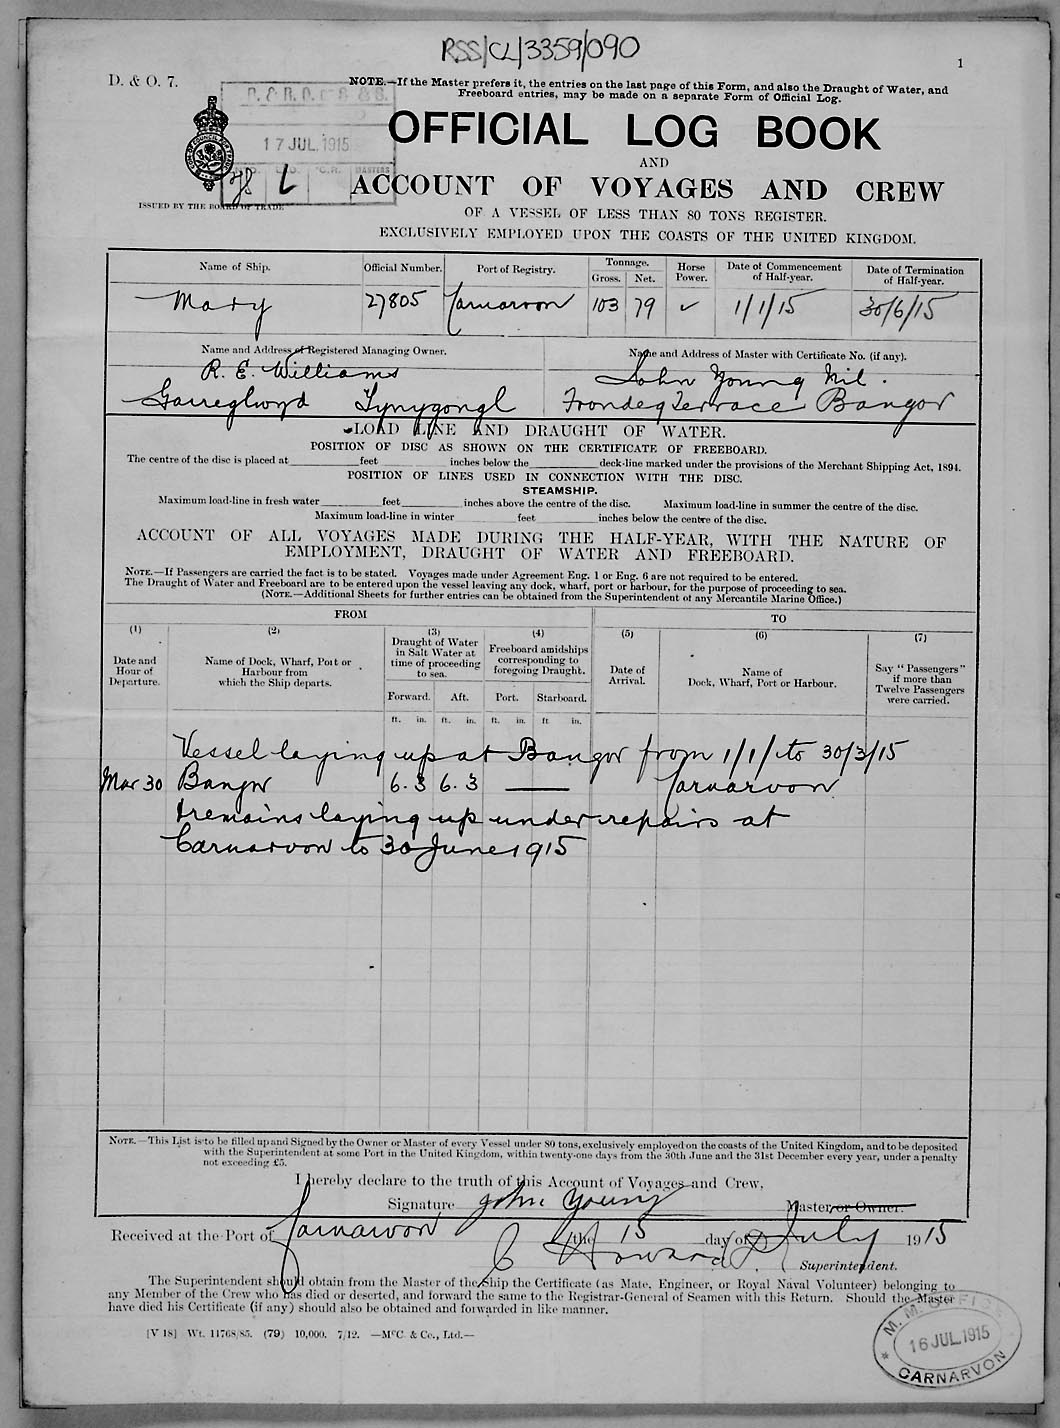 RSS/CL/3359/090
1
D. & O. 7.
NOTE.—If the Master prefers it, the entries on the last page of this Form, and also the Draught of Water, and
Freeboard entries, may be made on a separate Form of Official Log.
17 JUL. 1915
C.R. MASTERS
L
OFFICIAL LOG BOOK
AND
ACCOUNT OF VOYAGES AND CREW
ISSUED BY THE BOARD OF TRADE
OF A VESSEL OF LESS THAN 80 TONS REGISTER.
EXCLUSIVELY EMPLOYED UPON THE COASTS OF THE UNITED KINGDOM.
Name of Ship. Official Number. Port of Registry. Tonnage. Gross. Net. Horse Power. Date of Commencement of Half-year. Date of Termination of Half-year.
Mary 27805 Carnarvon 103 79 ✓ 1/1/15 30/6/15
Name and Address of Registered Managing Owner. Name and Address of Master with Certificate No. (if any).
R. E. Williams John Young Nil.
Garreglwyd Tynygongl Frondeg Terrace Bangor
LOAD LINE AND DRAUGHT OF WATER.
POSITION OF DISC AS SHOWN ON THE CERTIFICATE OF FREEBOARD.
The centre of the disc is placed at feet inches below the deck-line marked under the provisions of the Merchant Shipping Act, 1894.
POSITION OF LINES USED IN CONNECTION WITH THE DISC.
STEAMSHIP.
Maximum load-line in fresh water feet inches above the centre of the disc. Maximum load-line in summer the centre of the disc.
Maximum load-line in winter feet inches below the centre of the disc.
ACCOUNT OF ALL VOYAGES MADE DURING THE HALF-YEAR, WITH THE NATURE OF
EMPLOYMENT, DRAUGHT OF WATER AND FREEBOARD.
NOTE.—If Passengers are carried the fact is to be stated. Voyages made under Agreement Eng. 1 or Eng. 6 are not required to be entered.
The Draught of Water and Freeboard are to be entered upon the vessel leaving any dock, wharf, port or harbour, for the purpose of proceeding to sea.
(NOTE.—Additional Sheets for further entries can be obtained from the Superintendent of any Mercantile Marine Office.)
FROM TO
(1) (2) (3) (4) (5) (6) (7)
Date and Hour of Departure. Name of Dock, Wharf, Port or Harbour from which the Ship departs. Draught of Water in Salt Water at time of proceeding to sea. Freeboard amidships corresponding to foregoing Draught. Date of Arrival. Name of Dock, Wharf, Port or Harbour. Say "Passengers" if more than Twelve Passengers were carried.
Forward. Aft. Port. Starboard.
ft. in. ft. in. ft. in. ft in.
Vessel laying up at Bangor from 1/1/ to 30/3/15
Mar 30 Bangor 6.3 6.3 — Carnarvon
& remains laying up under repairs at
Carnarvon to 30 June 1915
NOTE.—This List is to be filled up and Signed by the Owner or Master of every Vessel under 80 tons, exclusively employed on the coasts of the United Kingdom, and to be deposited
with the Superintendent at some Port in the United Kingdom, within twenty-one days from the 30th June and the 31st December every year, under a penalty
not exceeding £5.
I hereby declare to the truth of this Account of Voyages and Crew,
Signature John Young Master or Owner.
Received at the Port of Carnarvon the 15 day of July 1915
Superintendent.
The Superintendent should obtain from the Master of the Ship the Certificate (as Mate, Engineer, or Royal Naval Volunteer) belonging to
any Member of the Crew who has died or deserted, and forward the same to the Registrar-General of Seamen with this Return. Should the Master
have died his Certificate (if any) should also be obtained and forwarded in like manner.
[V 18] Wt. 11768/85. (79) 10,000. 7/12. —McC. & Co., Ltd.—
M. M. OFFICE
16 JUL. 1915
CARNARVON